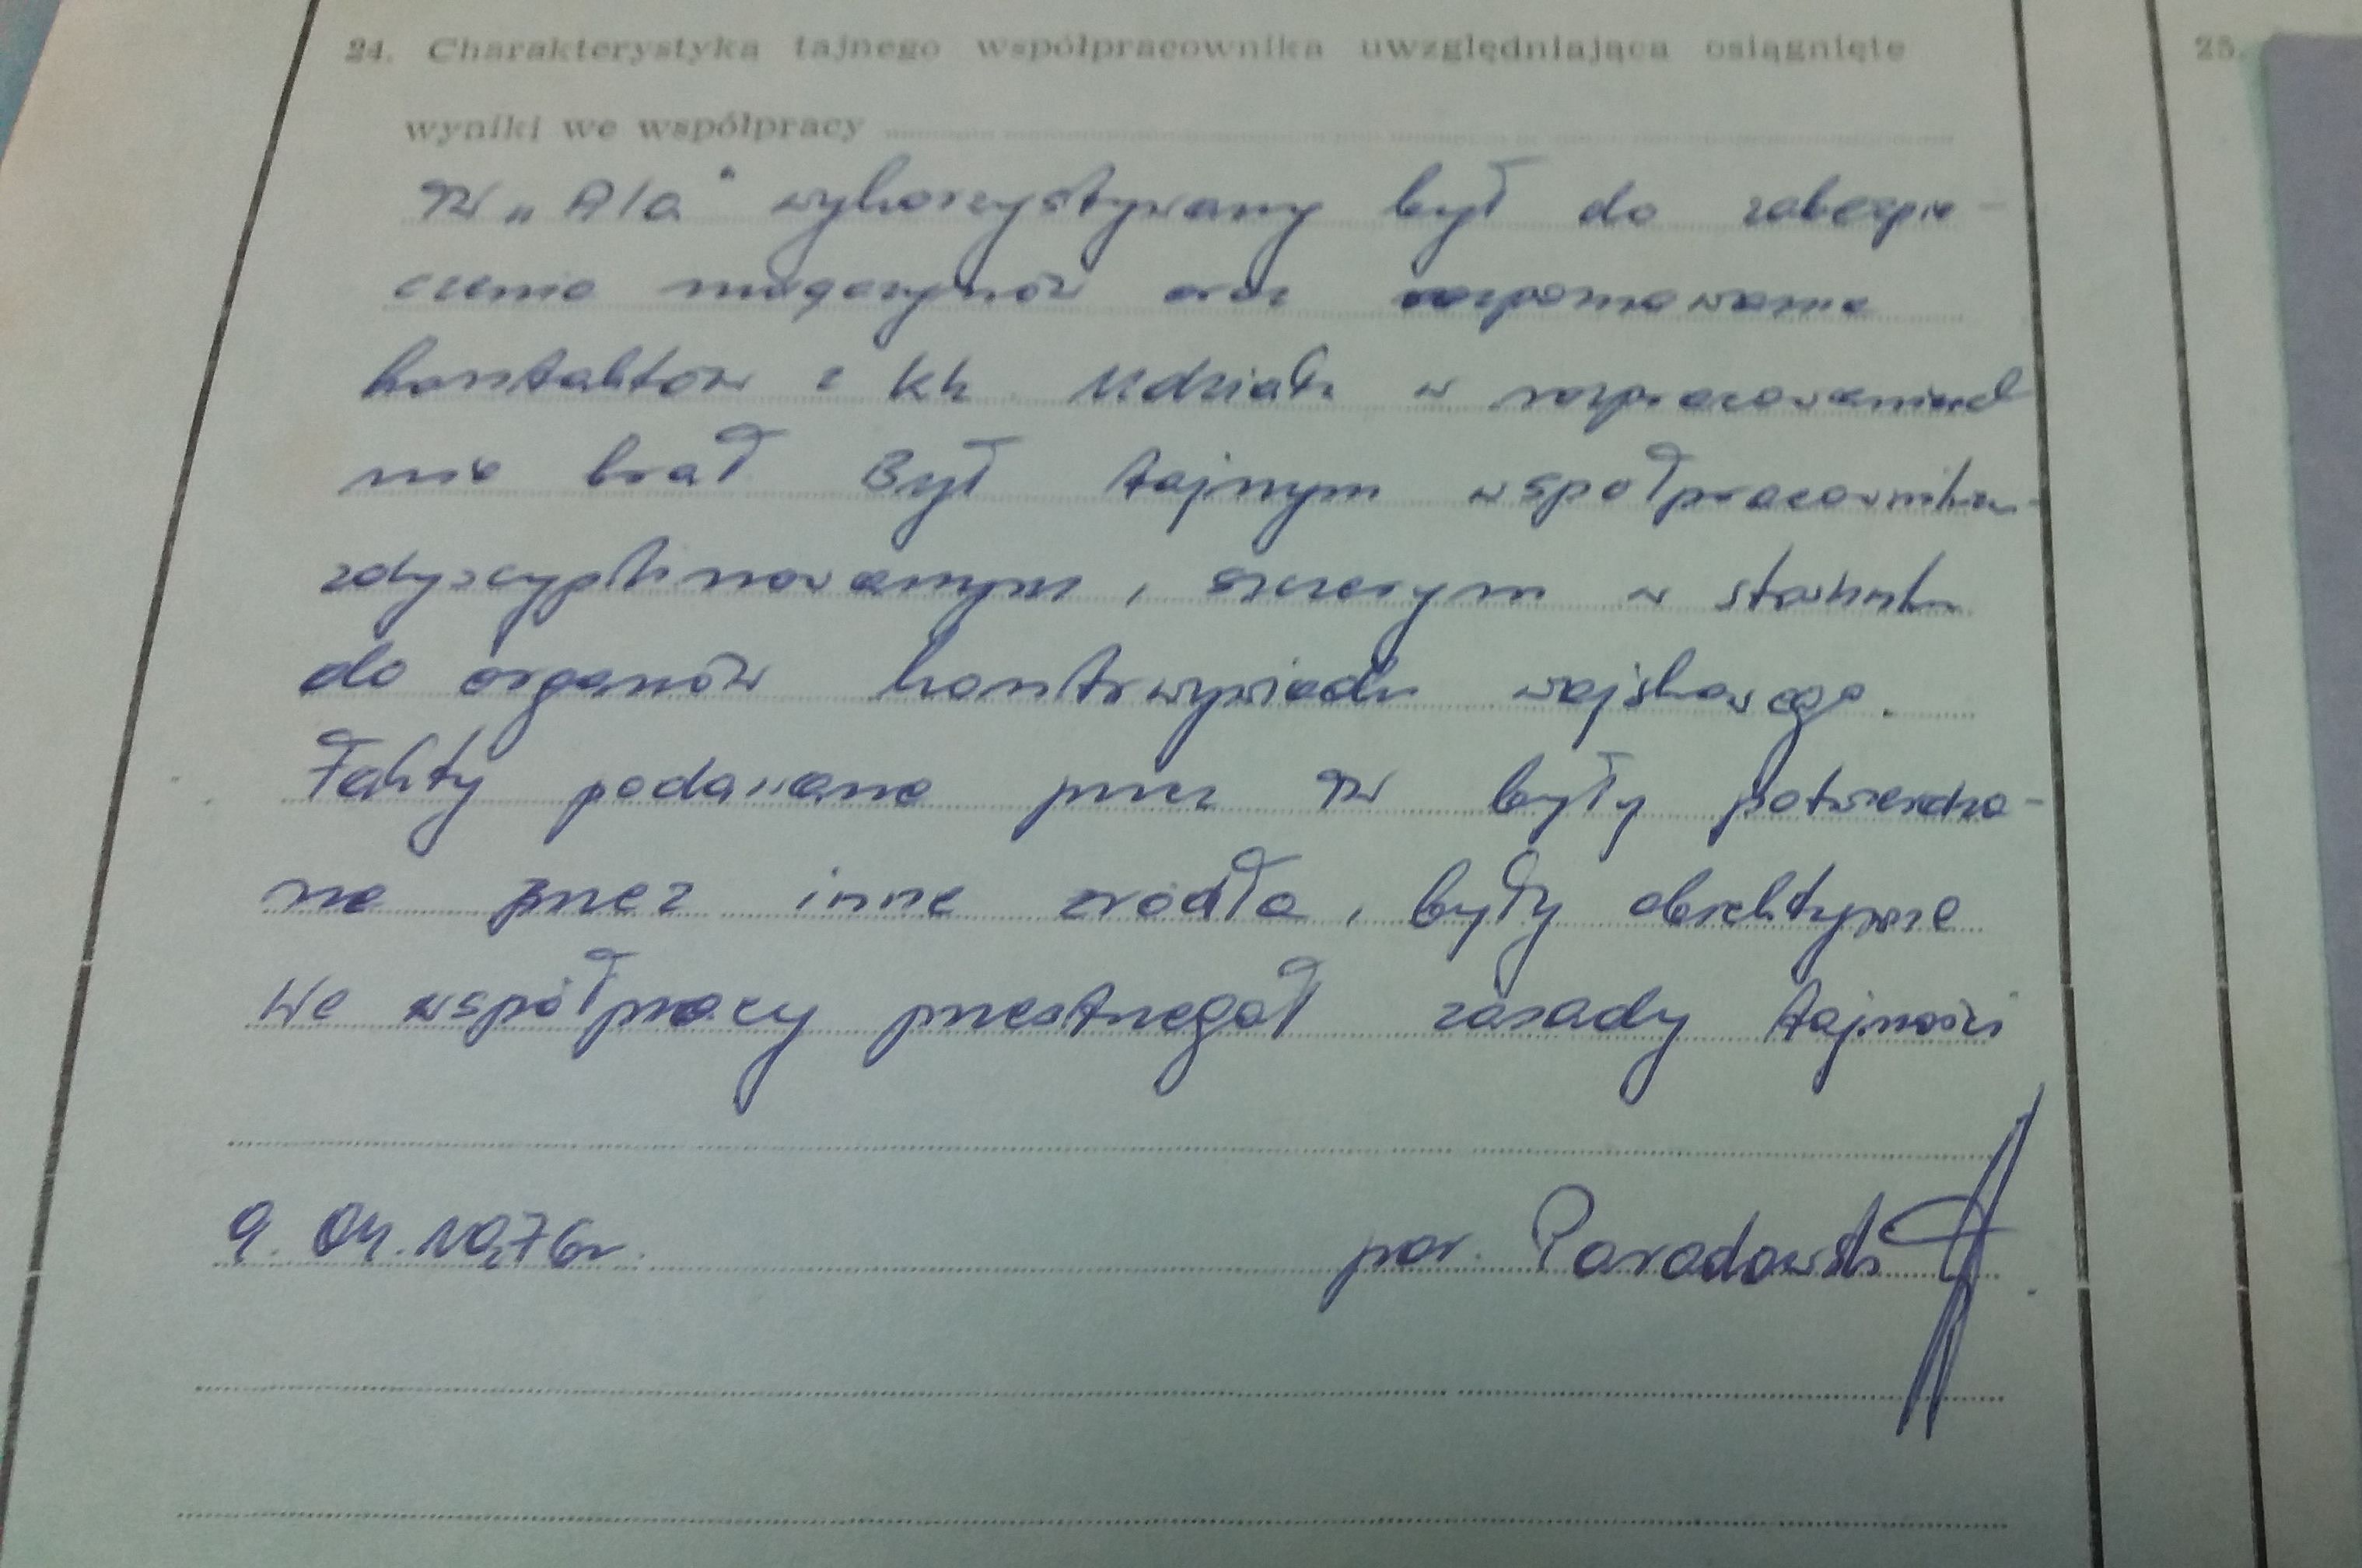 24. Charakterystyka tajnego współpracownika uwzględniająca osiągnięte
25.
wyniki we współpracy
TW „Ala" wykorzystywany był do zabezpie-
czenia magazynów oraz rozpoznawania
kontaktów z kk. Udziału w rozpracowaniach
nie brał Był tajnym współpracownikiem
zdyscyplinowanym, szczerym w stosunku
do organów kontrwywiadu wojskowego.
Fakty podawane przez TW były potwierdza-
ne przez inne źródła, były obiektywne
We współpracy przestrzegał zasady tajności
9.04.1976r. por. Paradowski